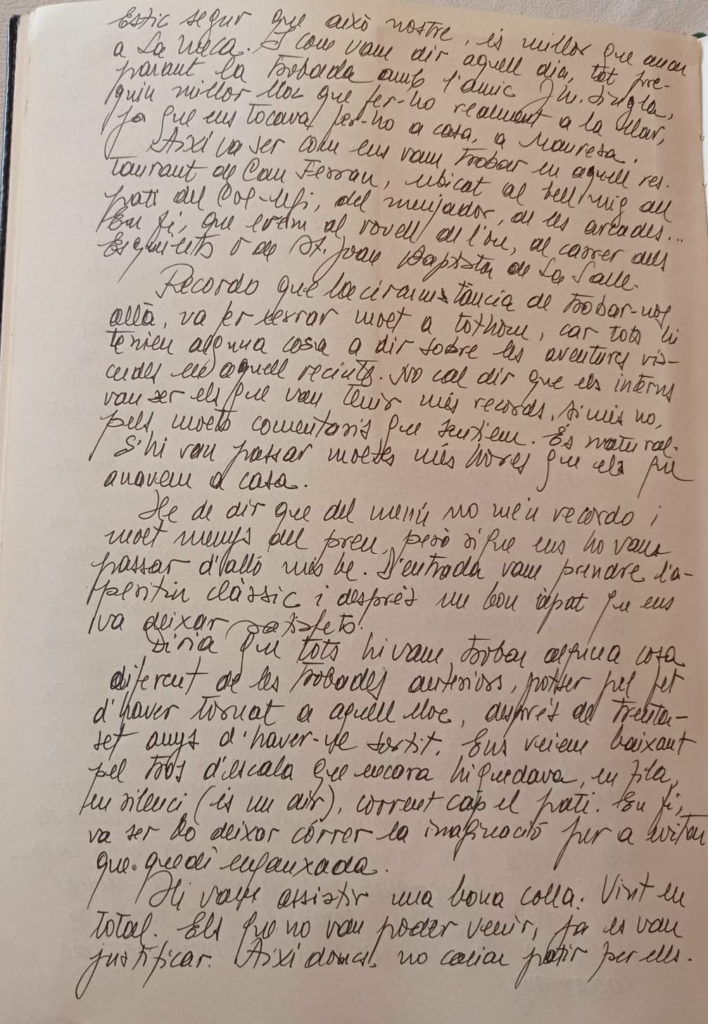 Estic segur que això nostre, és millor que anar
a La Meca. I com vam dir aquell dia, tot pre-
parant la trobada amb l'amic Jn. Singla,
quin millor lloc que fer-ho realment a la llar,
ja que ens tocava fer-ho a casa, a Manresa.
Així va ser com ens vam trobar en aquell res-
taurant de Can Ferran, ubicat al bell mig del
pati del Col·legi, del menjador, de les arcades...
En fi, que erem al rovell de l'ou, al carrer dels
Esquilets o de St. Joan Baptista de La Salle.
Recordo que la circumstància de trobar-nos
allà, va fer xerrar molt a tothom, car tots hi
teniem alguna cosa a dir sobre les aventures vis-
cudes en aquell recinte. No cal dir que els interns
van ser els que van tenir més records, si més no,
pels molts comentaris que sentiem. És natural.
S'hi van passar moltes més hores que els que
anavem a casa.
He de dir que del menú no me'n recordo i
molt menys del preu, però si que ens ho vam
passar d'allò més bé. D'entrada vam prendre l'a-
peritiu clàssic i després un bon àpat que ens
va deixar satisfets.
Diria que tots hi vam trobar alguna cosa
diferent de les trobades anteriors, potser pel fet
d'haver tornat a aquell lloc, després de trenta-
set anys d'haver-ne sortit. Ens veiem baixant
pel tros d'escala que encara hi quedava, en fila,
en silenci (és un dir), corrent cap el pati. En fi,
va ser bó deixar córrer la imaginació per a evitar
que quedi enganxada.
Hi vam assistir una bona colla. Vint en
total. Els que no van poder venir, ja es van
justificar. Així doncs, no calia patir per ells.